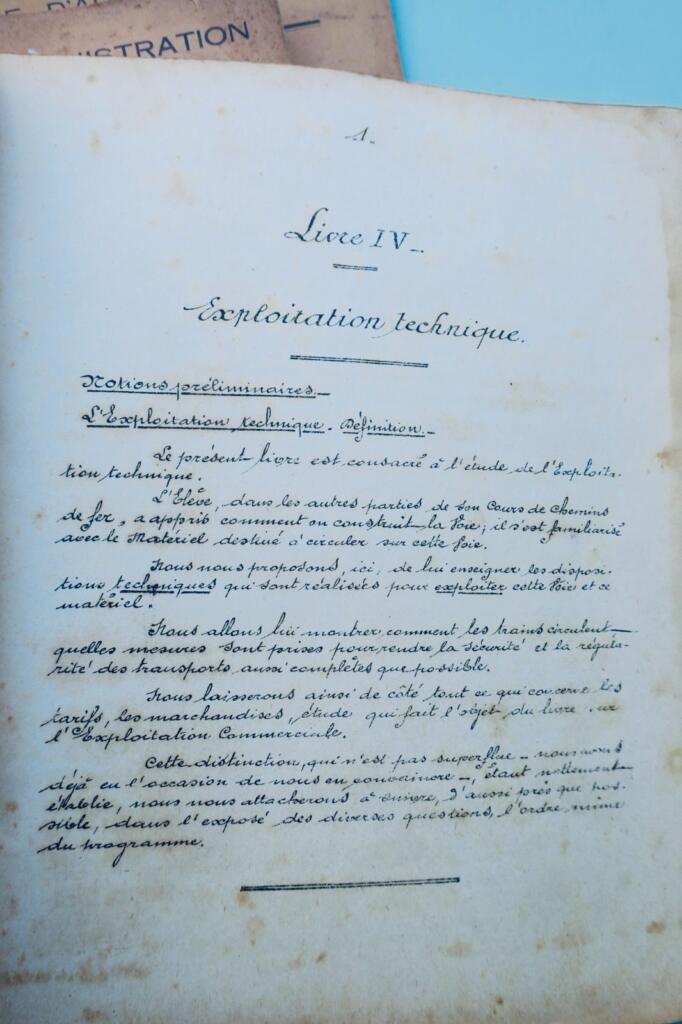 E D'A
ISTRATION
1.
Livre IV_
Exploitation technique.
Notions préliminaires._
L'Exploitation technique. Définition._
Le présent livre est consacré à l'étude de l'Exploita-
tion technique.
L'Elève, dans les autres parties de son Cours de Chemins
de fer, a appris comment on construit la Voie; il s'est familiarisé
avec le Matériel destiné à circuler sur cette Voie.
Nous nous proposons, ici, de lui enseigner les disposi-
tions techniques qui sont réalisées pour exploiter cette Voie et ce
matériel.
Nous allons lui montrer comment les trains circulent_
quelles mesures sont prises pour rendre la sécurité et la régula-
rité des transports aussi complètes que possible.
Nous laisserons ainsi de côté tout ce qui concerne les
tarifs, les marchandises, étude qui fait l'objet du livre sur
l'Exploitation Commerciale.
Cette distinction, qui n'est pas superflue _ nous avons
déjà eu l'occasion de nous en convaincre _, étant nettement
établie, nous nous attacherons à suivre, d'aussi près que pos-
sible, dans l'exposé des diverses questions, l'ordre même
du programme.